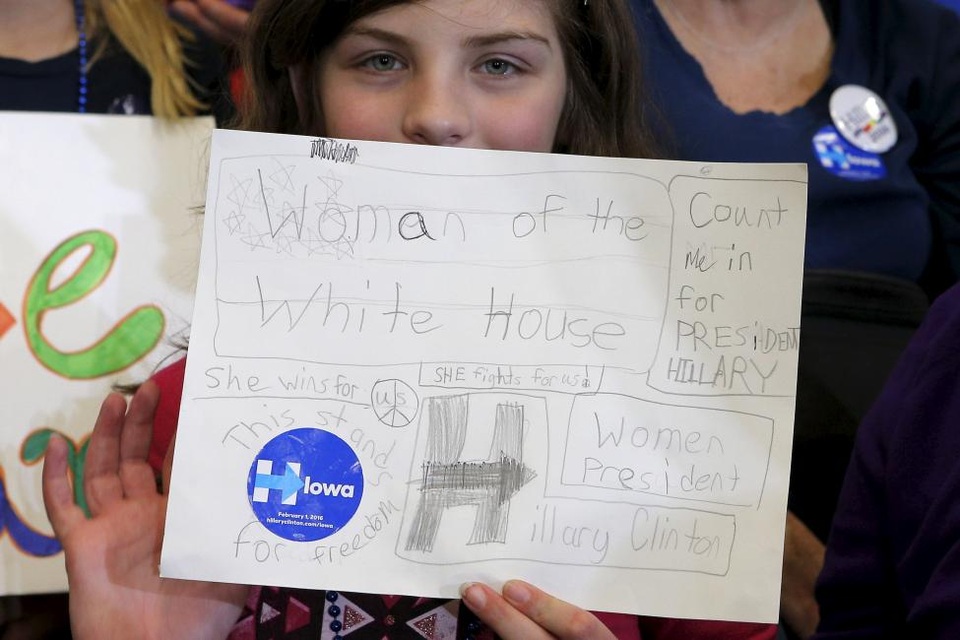 Woman of the
White House
Count
me in
for
PRESiDENT
HILLARY
She wins for us
SHE fights for us!
This stands
for freedom
H Iowa
February 1, 2016
hillaryclinton.com/iowa
Women
President
Hillary Clinton
H Iowa
e